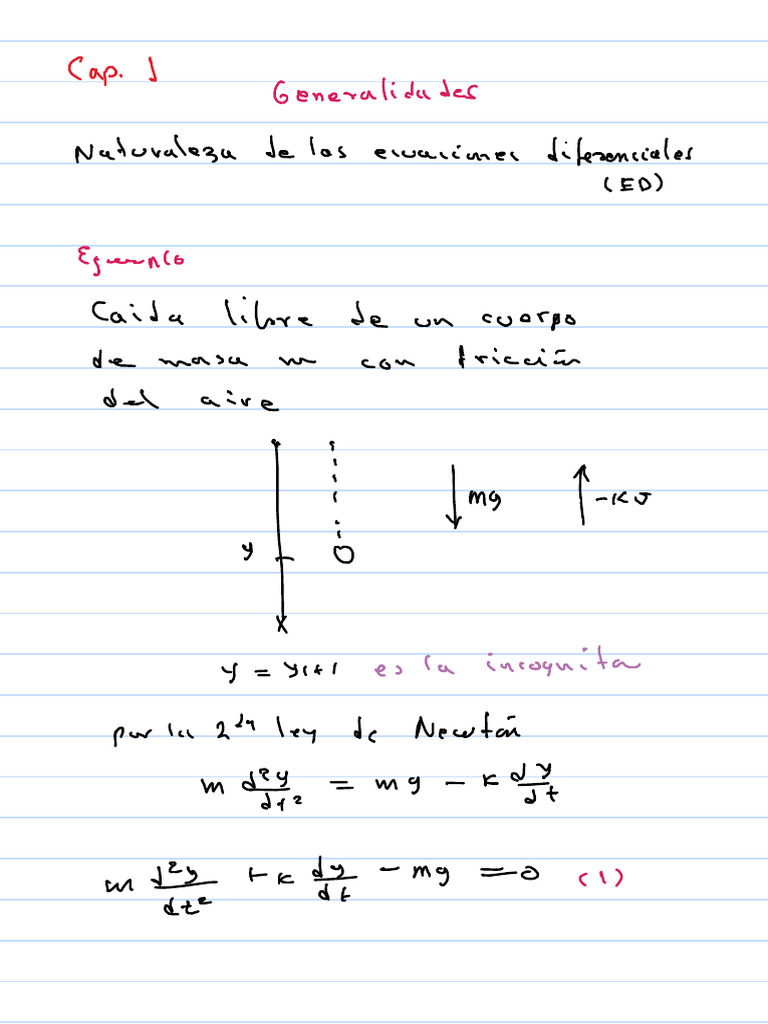 Cap. 1
Generalidades
Naturaleza de las ecuaciones diferenciales
(ED)
Ejemplo
Caida libre de un cuerpo
de masa m con fricción
del aire
mg
-kv
y
y = y(t) es la incognita
por la 2da ley de Newtón
m d²y/dt² = mg - k dy/dt
m d²y/dt² + k dy/dt - mg = 0 (1)